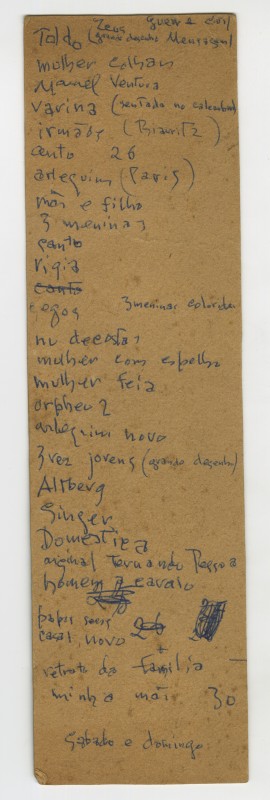 Zeus guerra civil
Toldo (grande desenho Mensagem)
mulher colhares
Manuel Ventura
varina (sentada no calcanhar)
irmãos (Biarritz)
canto 26
arlequim (Paris)
mãe e filho
3 meninas
santo
vigia
cegos 3 meninas coloridas
nu de costas
mulher com espelho
mulher feia
orpheu 2
arlequim novo
3 vez jovens (grande desenho)
Altberg
Singer
Domestica
original Fernando Pessoa
homem a cavalo
casal novo
retrato da familia
minha mãe 30
Sabado e domingo